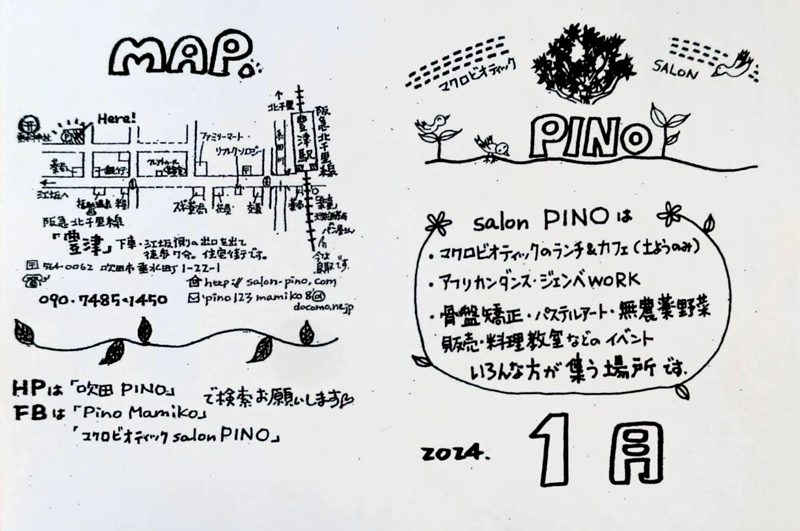 MAP.
Here!
↑北千里
阪急北千里線
豊津駅
ファミリーマート・
リフレクソロジー
江坂へ
阪急北千里線
「豊津」下車・江坂側の出口を出て
徒歩7分。住宅街です。
〒564-0062 吹田市垂水町1-22-1
http://salon-pino.com
090-7485-1450
pino123mamiko8@
docomo.ne.jp
HPは「吹田 PINO」
で検索お願いします♡
FBは「Pino Mamiko」
「マクロビオティック salon PINO」
マクロビオティック
SALON
PINO
salon PINOは
・マクロビオティックのランチ&カフェ(土ようのみ)
・アフリカンダンス・ジェンベWORK
・骨盤矯正・パステルアート・無農薬野菜
販売・料理教室などのイベント
いろんな方が集う場所です。
2024. 1月